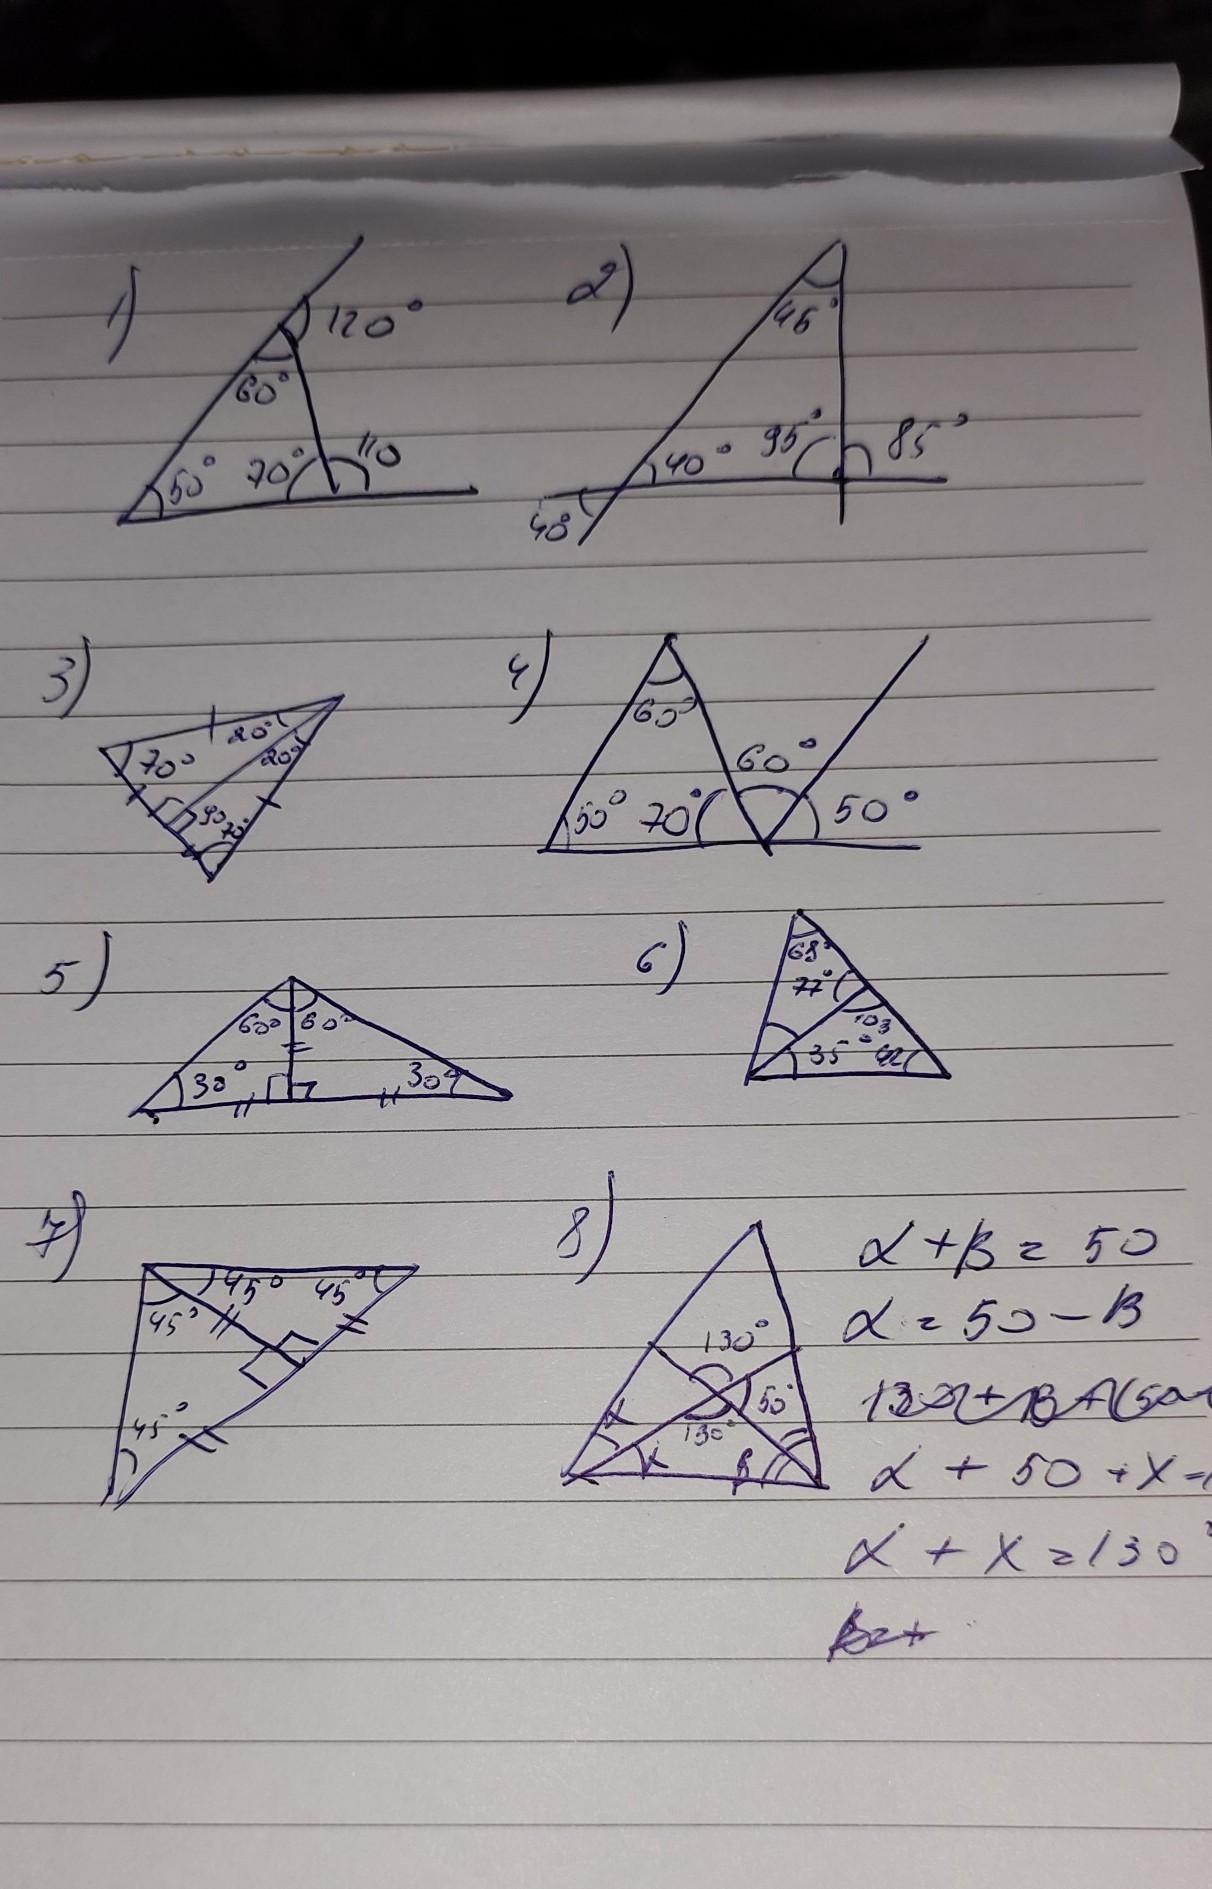 1)
120°
60°
50° 70° 110
2)
45°
40° 95° 85°
40°
3)
70° 20°
20°
90 70°
4)
60°
60°
50° 70° 50°
5)
60° 60°
30° 30°
6)
68°
77°
103
35° 42
7)
45° 45°
45°
45°
8)
130°
50°
130°
α
α β
α + β = 50
α = 50 - β
α + 50 + x =
α + x = 130°